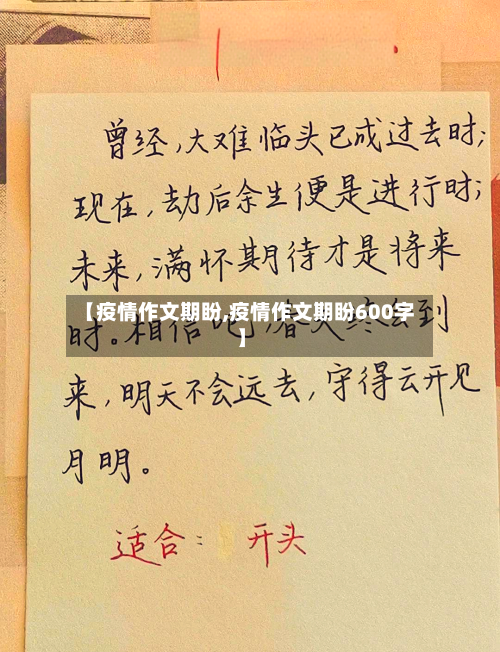 曾经,大难临头已成过去时;
现在,劫后余生便是进行时;
未来,满怀期待才是将来
时。相信吧,春天终会到
【疫情作文期盼,疫情作文期盼600字
】
来,明天不会远去,守得云开见
月明。
适合: 开头